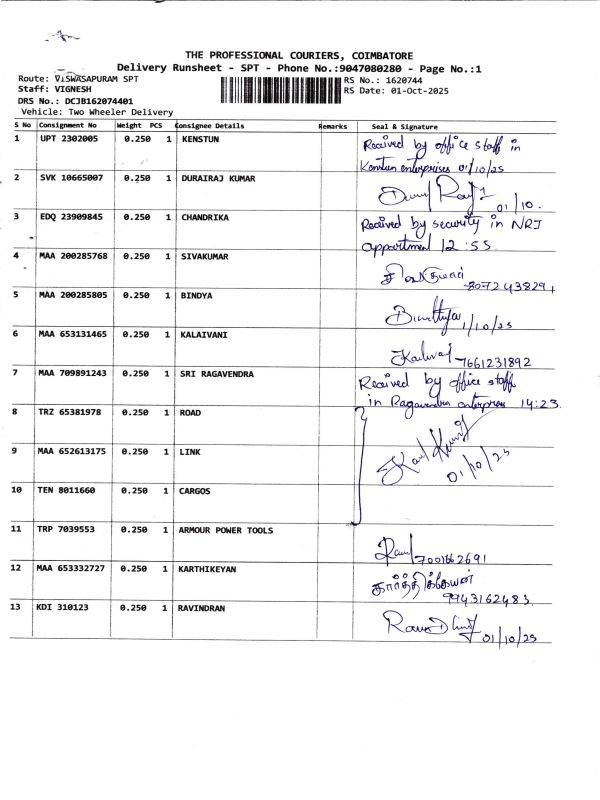 THE PROFESSIONAL COURIERS, COIMBATORE
Delivery Runsheet - SPT - Phone No.:9047080280 - Page No.:1
Route: VISWASAPURAM SPT
RS No.: 1620744
Staff: VIGNESH
RS Date: 01-Oct-2025
DRS No.: DCJB162074401
Vehicle: Two Wheeler Delivery
S No Consignment No Weight PCS Consignee Details Remarks Seal & Signature
1 UPT 2302005 0.250 1 KENSTUN Received by office staff in
Kenstun enterprises 01/10/25
2 SVK 10665007 0.250 1 DURAIRAJ KUMAR
01/10.
3 EDQ 23909845 0.250 1 CHANDRIKA Received by security in NRI
appartment 12:55
4 MAA 200285768 0.250 1 SIVAKUMAR
சிவகுமார்
5 MAA 200285805 0.250 1 BINDYA
1/10/25
6 MAA 653131465 0.250 1 KALAIVANI
7661231892
7 MAA 709891243 0.250 1 SRI RAGAVENDRA Received by office staff
in Ragavendra enterprises 14:23.
8 TRZ 65381978 0.250 1 ROAD
9 MAA 652613175 0.250 1 LINK
01/10/25
10 TEN 8011660 0.250 1 CARGOS
11 TRP 7039553 0.250 1 ARMOUR POWER TOOLS
12 MAA 653332727 0.250 1 KARTHIKEYAN
கார்த்திக்கேயன்
9943162483.
13 KDI 310123 0.250 1 RAVINDRAN
01/10/25